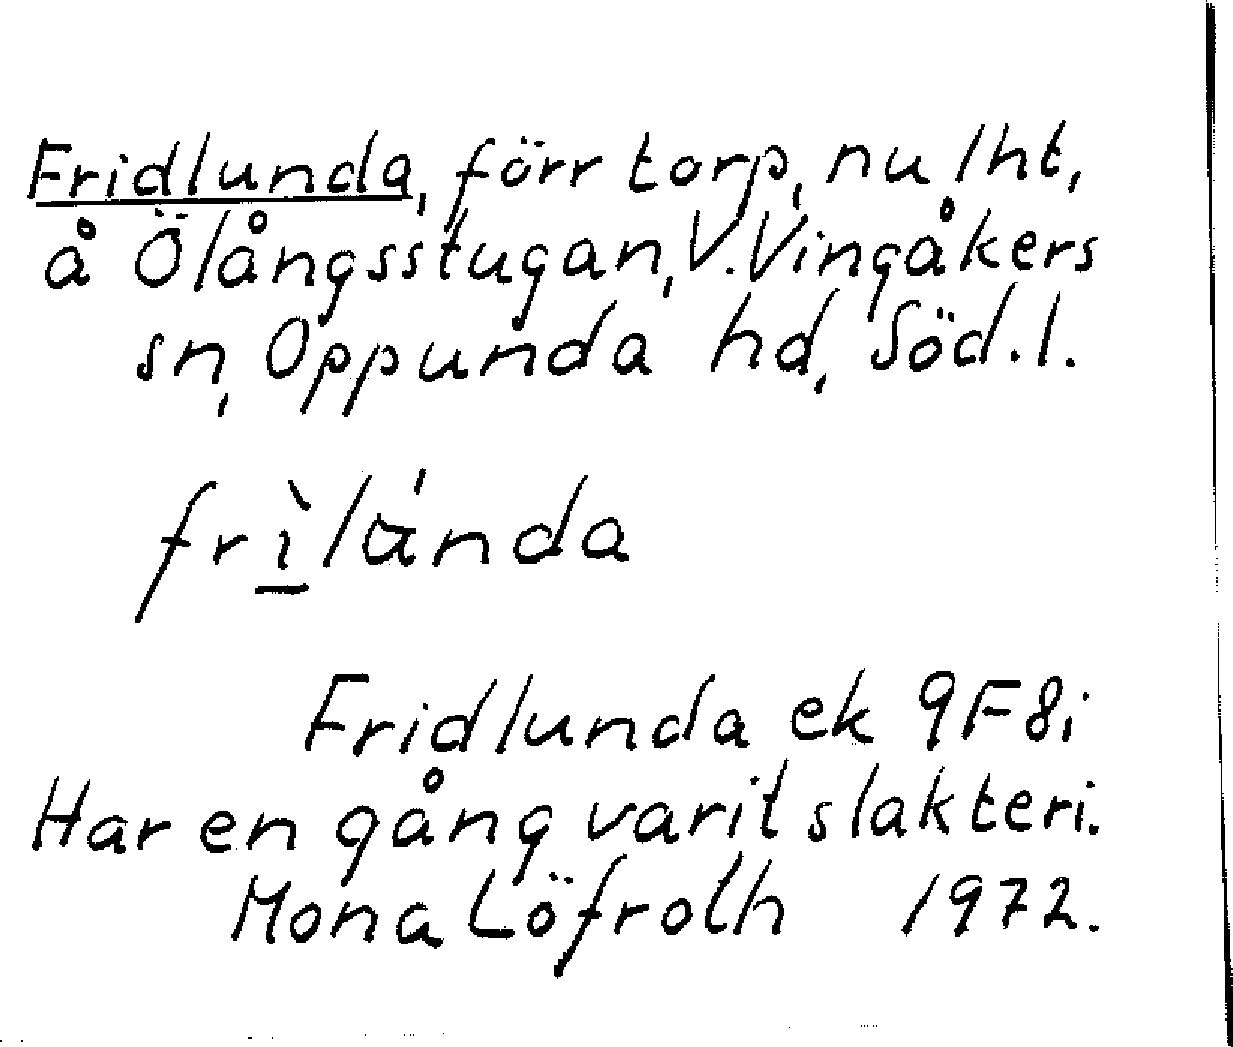 Fridlunda, förr torp, nu lht,
å Ölångsstugan, V. Vingåkers
sn, Oppunda hd, Söd. l.
frìlúnda
Fridlunda ek 9F8i
Har en gång varit slakteri.
Mona Löfroth 1972.